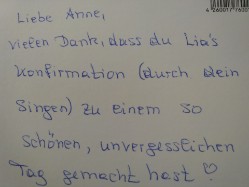 Liebe Anne,
vielen Dank, dass du Lia's
Konfirmation (durch dein
Singen) zu einem so
schönen, unvergesslichen
Tag gemacht hast ♡